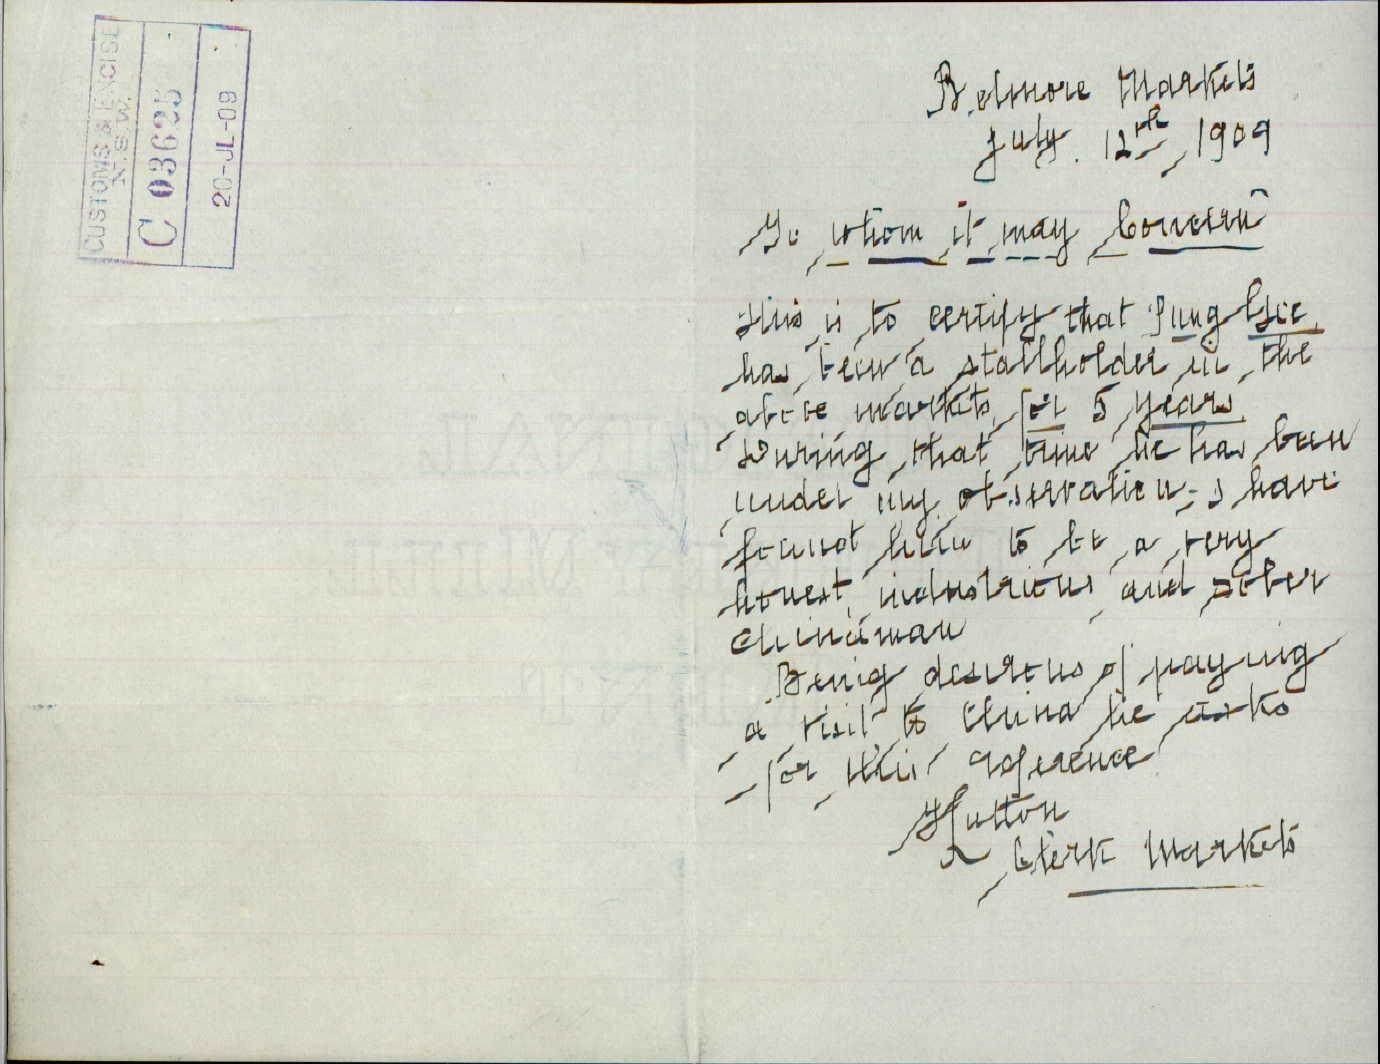 CUSTOMS & EXCISE
N.S.W.
C 03625
20-JL-09
Belmore Markets
July. 12th, 1909
To whom it may Concern
This is to certify that Gee
has been a stallholder in the
above markets for 5 years
During that time he has been
under my observation - I have
found him to be a very
honest, industrious and sober
Chinaman
Being desirous of paying
a visit to China he asks
for this reference
Clerk Markets
ORIGINAL
TURKEY MILL
KENT